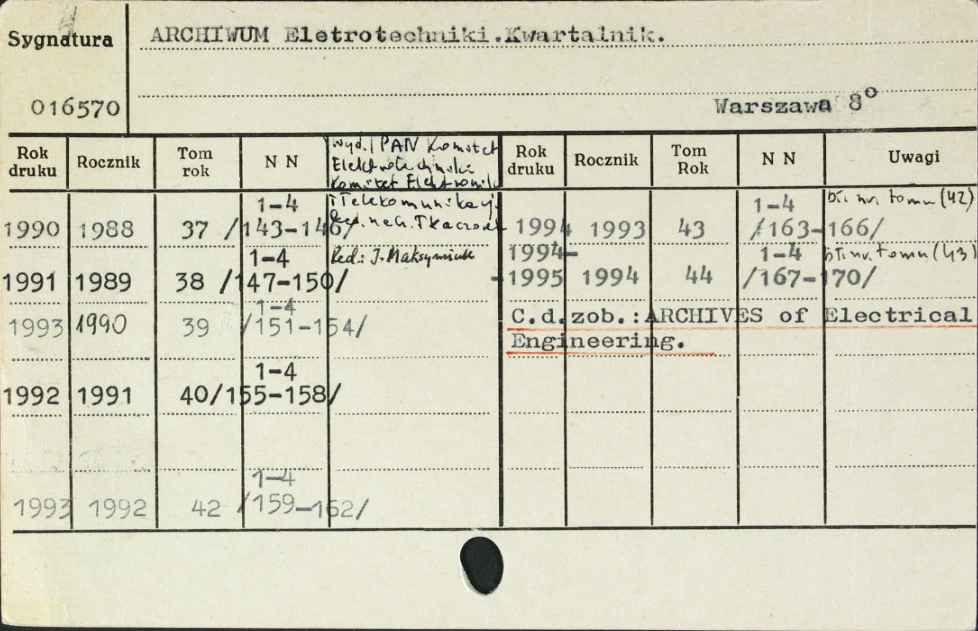 Sygnatura ARCHIWUM Eletrotechniki.Kwartalnik.
016570 Warszawa 8°
Rok druku Rocznik Tom rok N N
wyd. PAN Komitet
Elektrotechniki
Komitet Elektroniki
i Telekomunikacji.
1990 1988 37 1-4 /143-146/
Red.: J. Maksymiuk
1991 1989 38 1-4 /147-150/
1993 1990 39 1-4 /151-154/
1992 1991 40 1-4 /155-158/
1993 1992 42 1-4 /159-162/
Rok druku Rocznik Tom Rok N N Uwagi
1994 1993 43 1-4 /163-166/ bł. nr. tomu (42)
1994-1995 1994 44 1-4 /167-170/ bł. nr. tomu (43)
C.d.zob.:ARCHIVES of Electrical
Engineering.